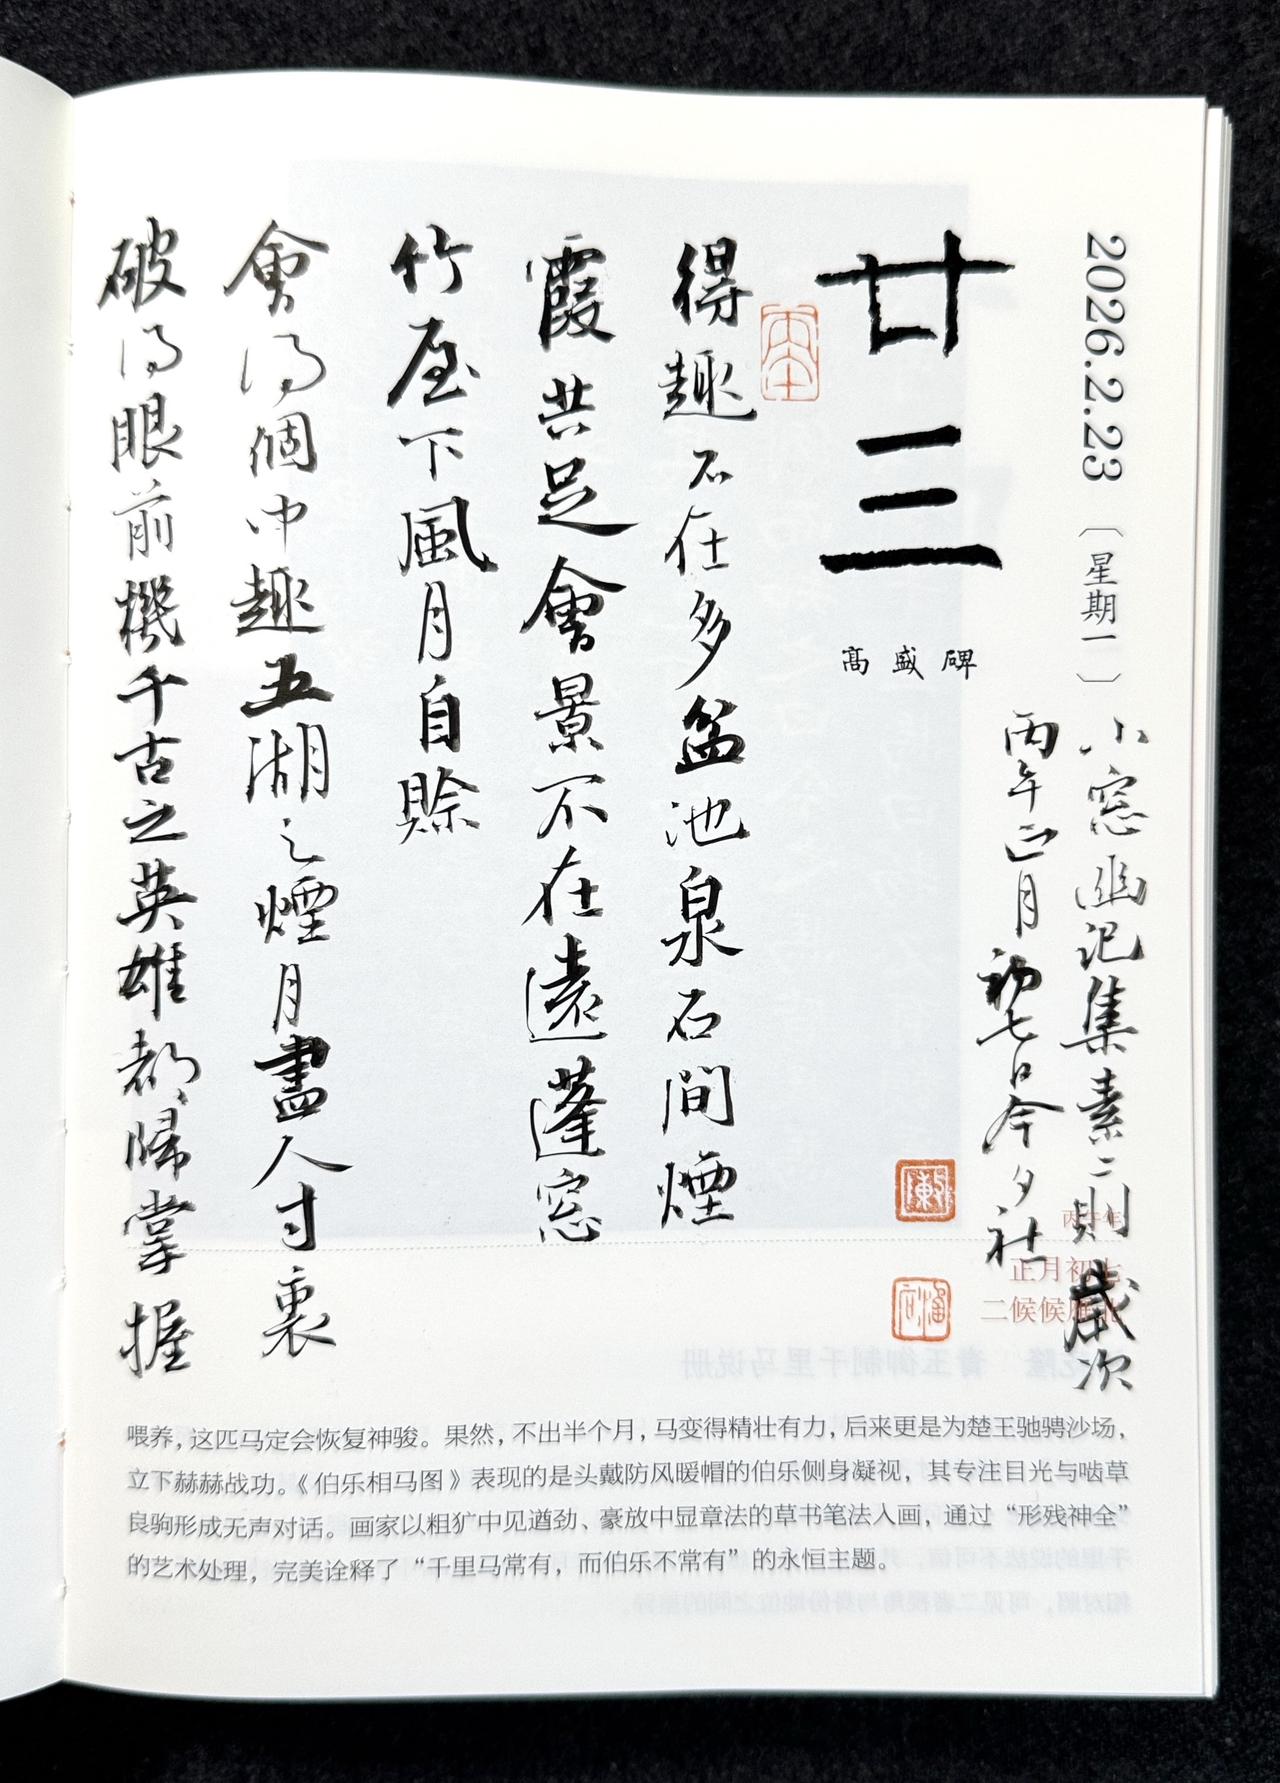 2026.2.23〔星期一〕
廿三
高盛碑
得趣不在多盆池泉石間煙
霞共足會景不在遠蓬窓
竹屋下風月自賒
會得個中趣五湖之煙月盡人寸裏
破得眼前機千古之英雄都歸掌握
小窓幽記集素二則歲次
丙午正月初七日今夕社
丙午年
正月初七
二候候雁北
喂养，这匹马定会恢复神骏。果然，不出半个月，马变得精壮有力，后来更是为楚王驰骋沙场，
立下赫赫战功。《伯乐相马图》表现的是头戴防风暖帽的伯乐侧身凝视，其专注目光与啮草
良驹形成无声对话。画家以粗犷中见遒劲、豪放中显章法的草书笔法入画，通过“形残神全”
的艺术处理，完美诠释了“千里马常有，而伯乐不常有”的永恒主题。